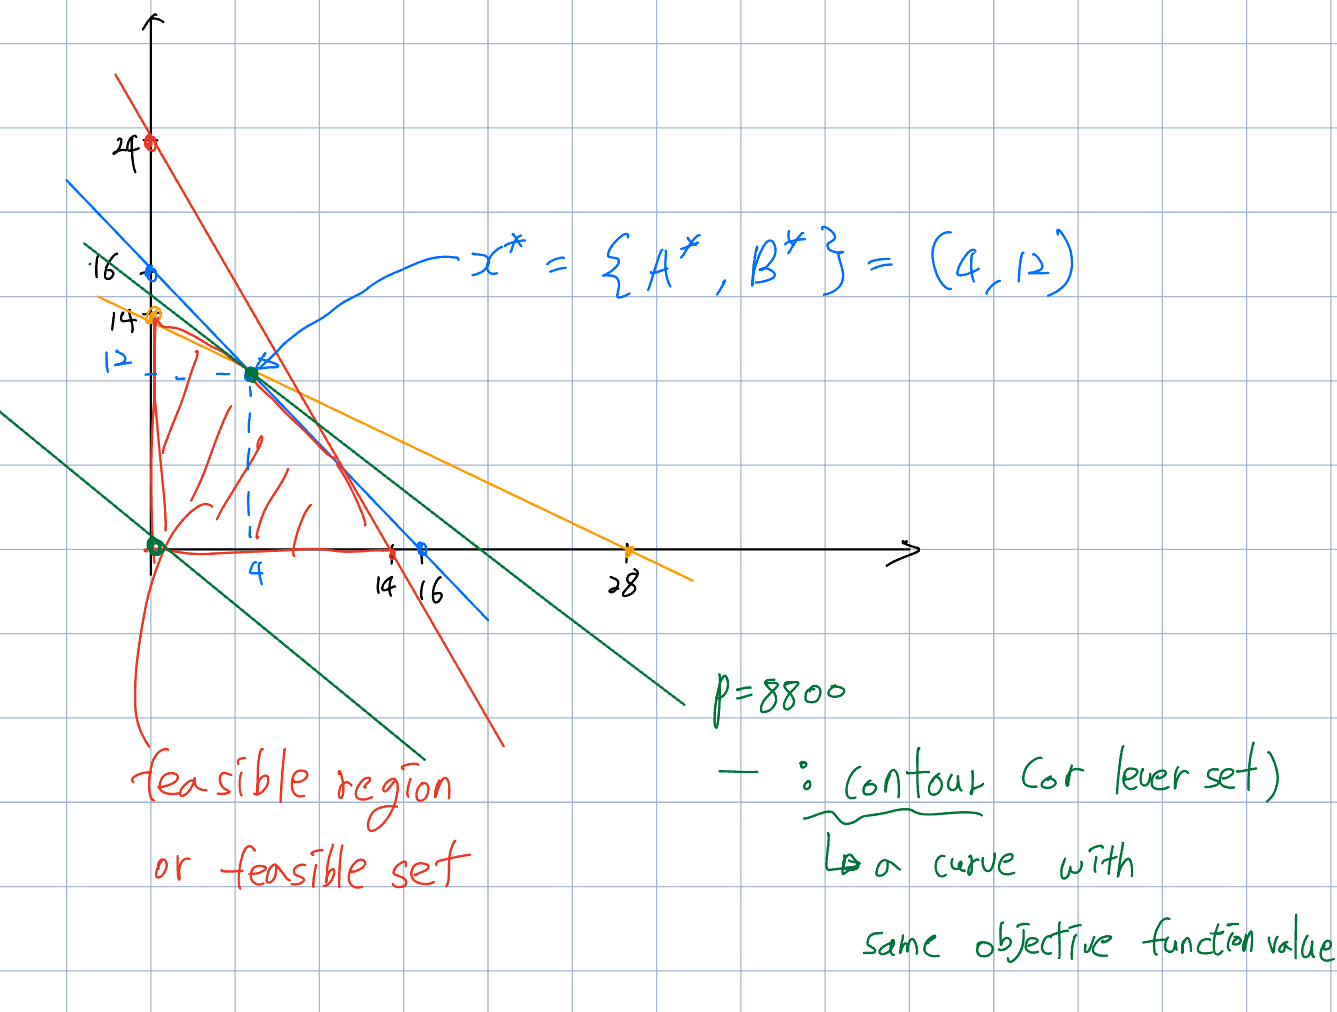 24
16
x* = {A*, B*} = (4, 12)
14
12
4
14
16
28
P=8800
feasible region
or feasible set
— : contour (or lever set)
↳ a curve with
same objective function value